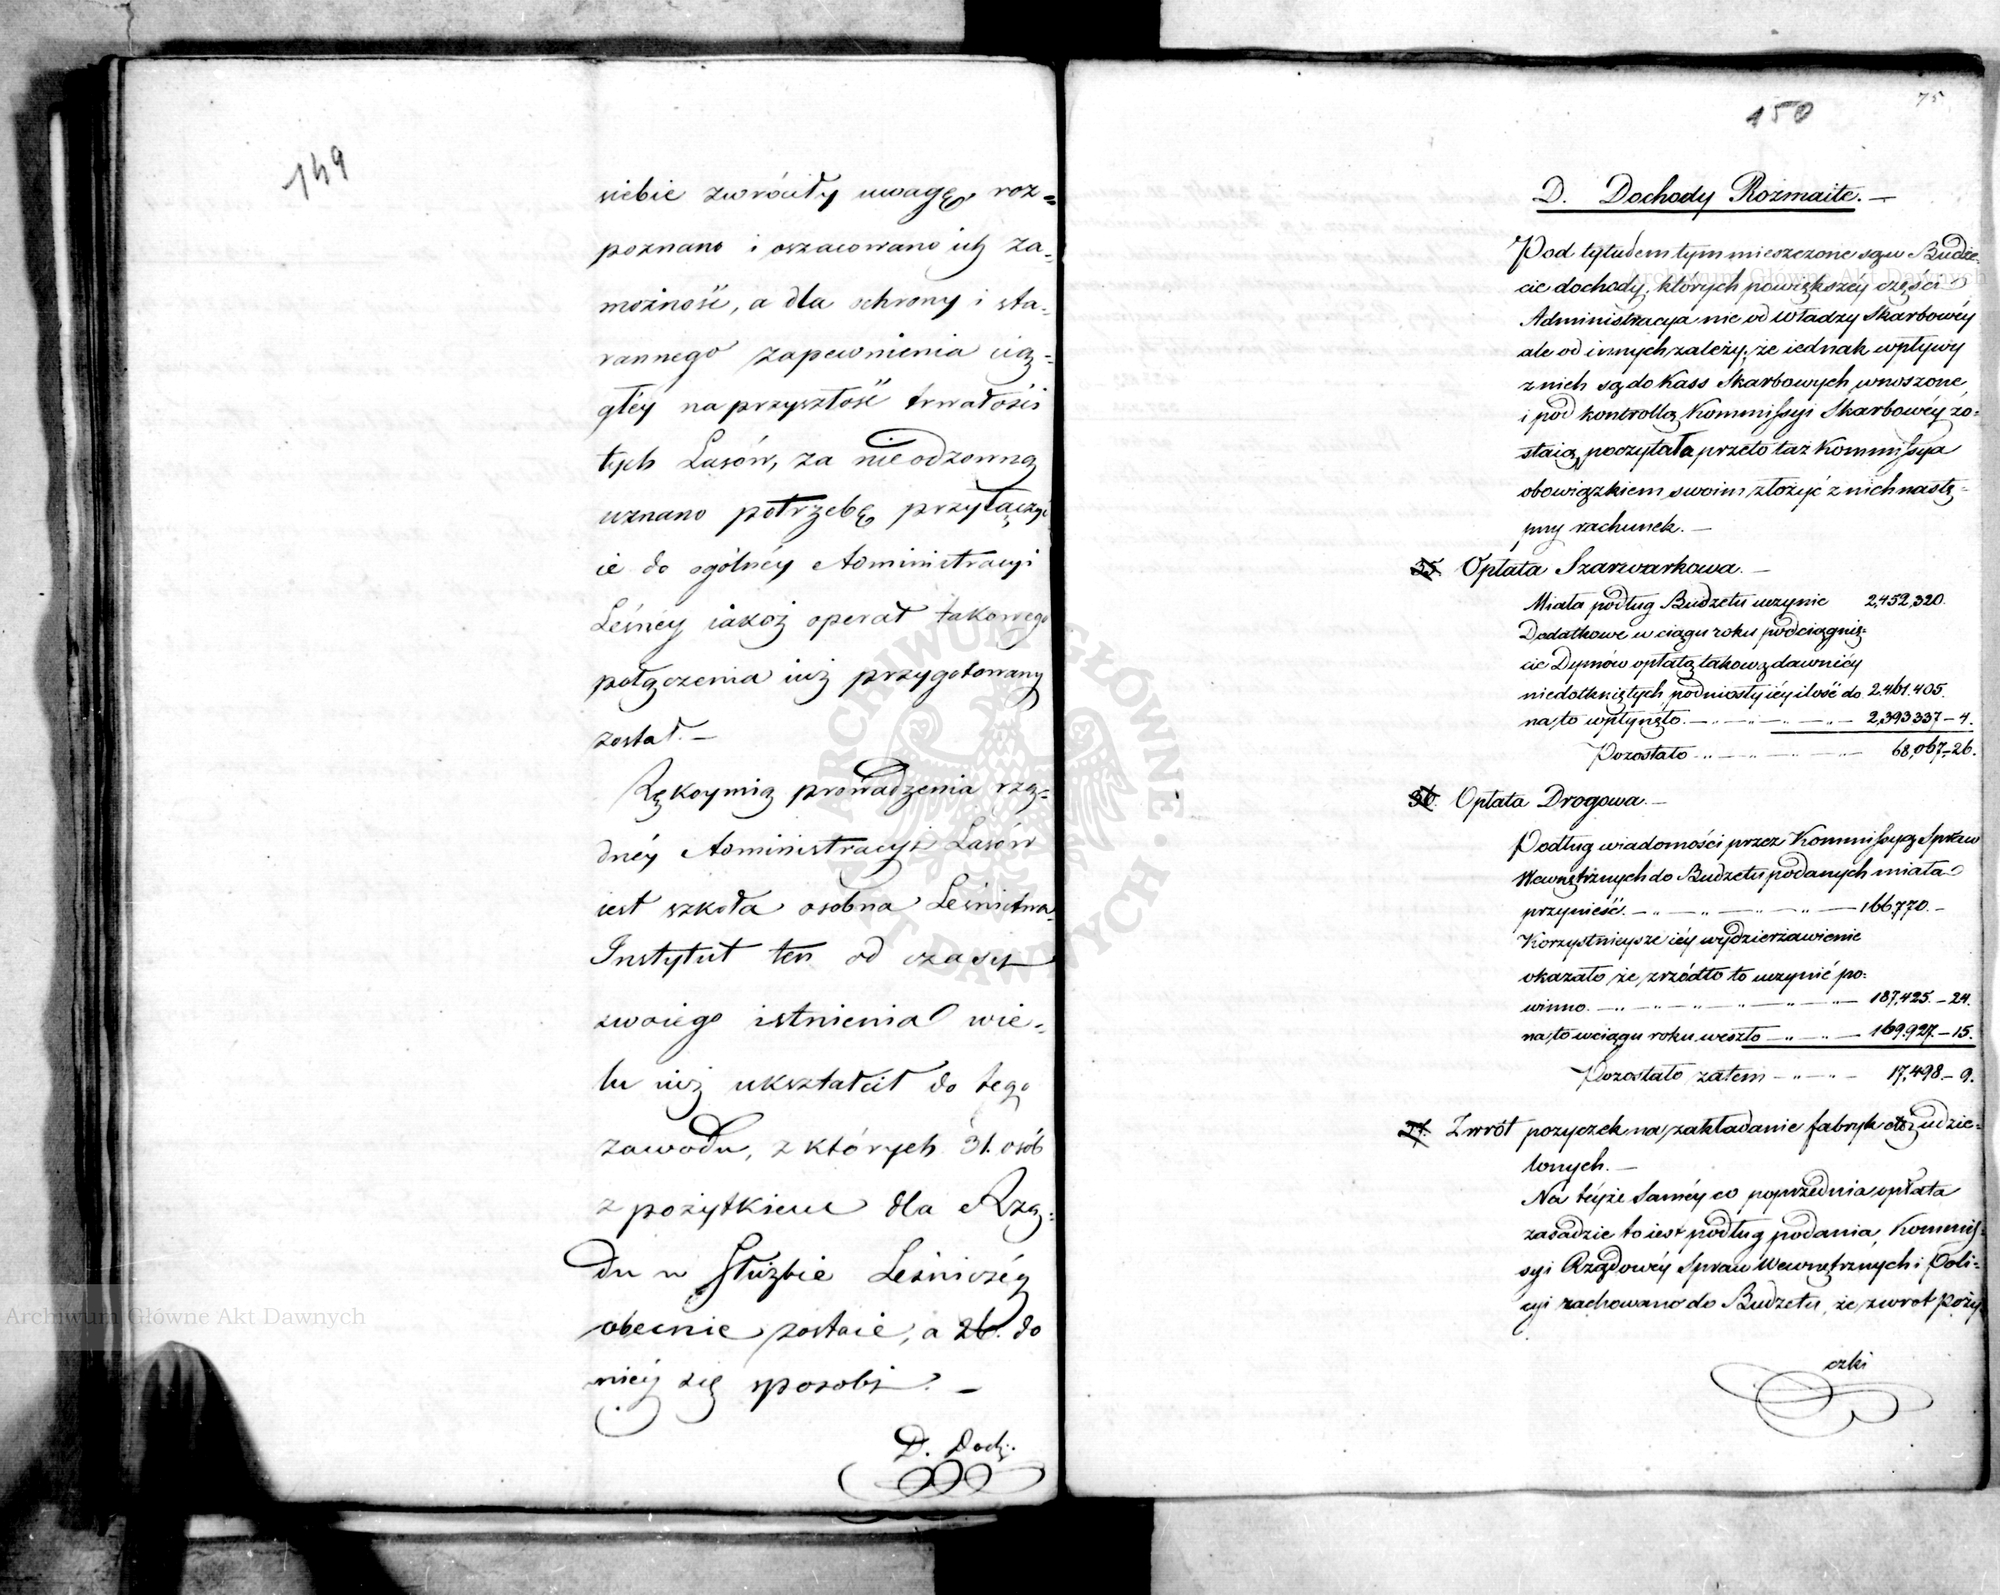 149
siebie zwróciły uwagę, roz=
poznano i oszacowano ich za=
możność, a dla ochrony i sta=
rannego zapewnienia cią=
głéy na przyszłość trwałości
tych Lasów, za nieodzowną
uznano potrzebę przyłączyć
ie do ogólnéy Administracyi
Leśnéy iakoż operat takowego
połączenia iuż przygotowany
został. —
Rękoymią prowadzenia rzą=
dnéy Administracyi Lasów
iest szkoła osobna Leśnictwa.
Instytut ten od czasu
swoiego istnienia wie=
lu iuż ukształcił do tego
zawodu, z których 31. osób
z pożytkiem dla Rzą=
du w służbie Leśniczéy
obecnie zostaie, a 26. do
niéy się sposobi. —
D. Doch:
75
150
D. Dochody Rozmaite. —
Pod tytułem tym mieszczone są w Budże=
cie dochody, których powiększéy części
Administracyia nie od Władzy Skarbowéy
ale od innych zależy; że iednak wpływy
z nich są do Kass Skarbowych wnoszone
i pod kontrollą Kommissyi Skarbowéy zo=
staią, poczytała przeto taż Kommissya
obowiązkiem swoim złożyć z nich nastę=
pny rachunek. —
35. Opłata Szarwarkowa. —
Miała podług Budżetu uczynić 2,452,320.
Dodatkowe w ciągu roku podciągnię=
cie Dymów opłatą takową dawniéy
niedotkniętych, podniosły iéy ilość do 2.461.405.
na to wpłynęło. — 2,393337 — 4.
Pozostało — 68,067 — 26.
36. Opłata Drogowa. —
Podług wiadomości przez Kommissyą Spraw
Wewnętrznych do Budżetu podanych miała
przynieść. — 166,770. —
Korzystnieysze iéy wydzierżawienie
okazało że, zrzódło to uczynić po=
winno. — 187,425. — 24.
na to w ciągu roku weszło — 169.927 — 15.
Pozostało zatem — 17,498 — 9.
37. Zwrót pożyczek na zakładanie fabryk udzie=
lonych. —
Na téyże saméy co poprzednia opłata
zasadzie to iest podług podania Kommis=
syi Rządowéy Spraw Wewnętrznych i Poli=
cyi rachowano do Budżetu, że zwrot poży=
czki
Archiwum Główne Akt Dawnych
Archiwum Główne Akt Dawnych
ARCHIWUM GŁÓWNE AKT DAWNYCH